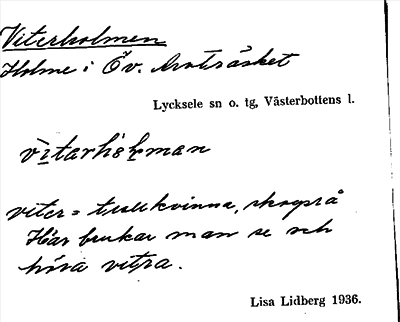 Viterholmen
Holme i Öv. Arvträsket
Lycksele sn o. tg, Västerbottens l.
viter = trollkvinna, skogsrå
Här brukar man se och
höra vitra.
Lisa Lidberg 1936.